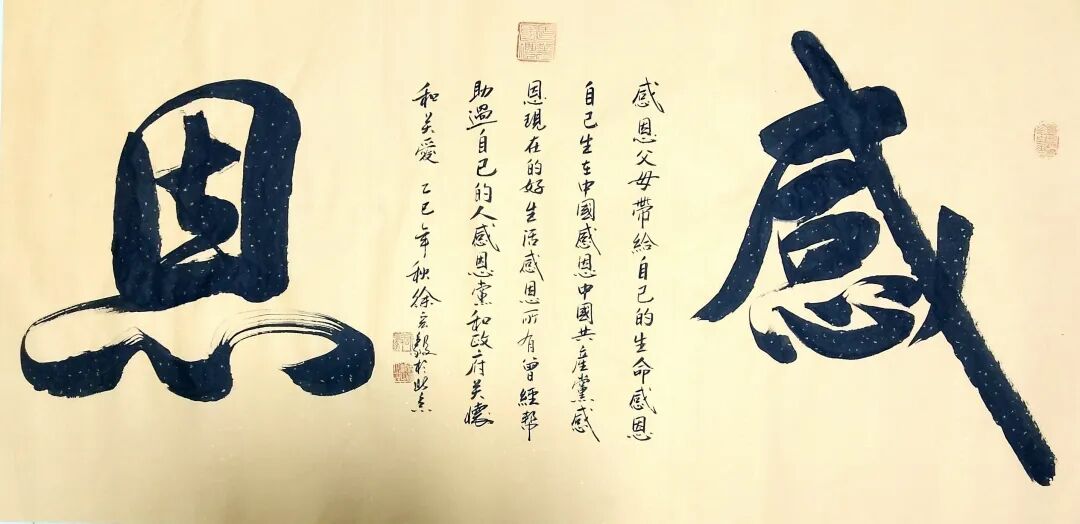 感恩
感恩父母带給自己的生命感恩
自己生在中國感恩中國共産黨感
恩現在的好生活感恩所有曾經帮
助過自己的人感恩黨和政府关懷
和关愛 乙巳年秋徐宏毅於北京